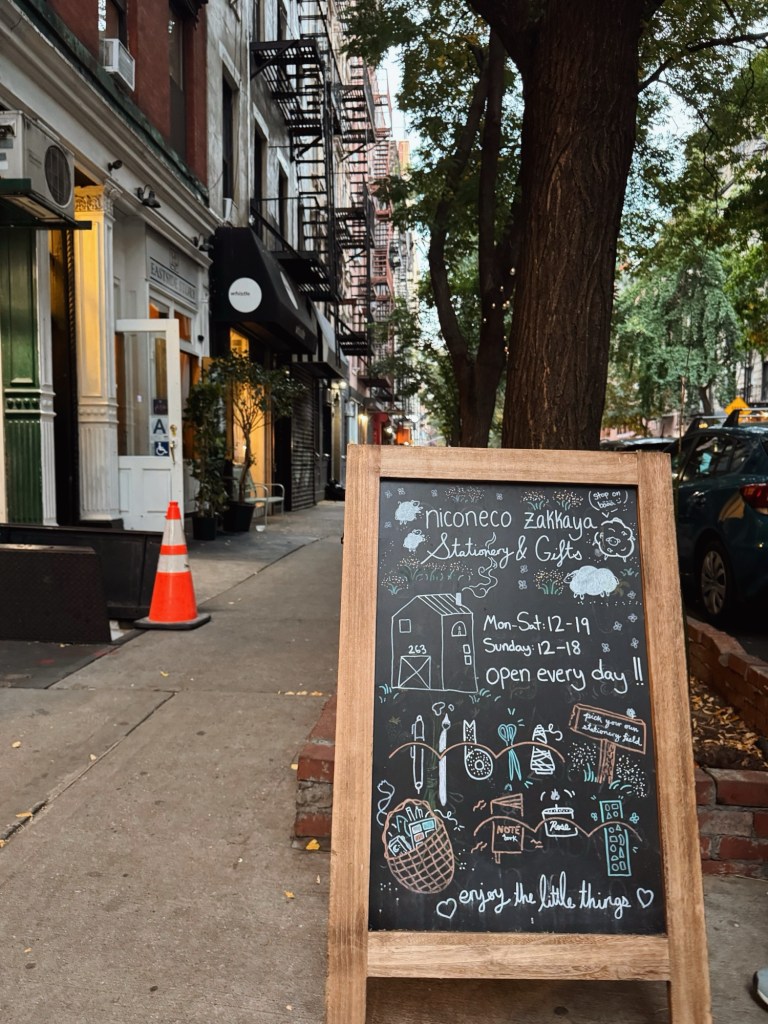 niconeco zakkaya
Stationery & Gifts
stop on
baaa
263
Mon-Sat: 12-19
Sunday: 12-18
open every day !!
pick your own
stationery field
NOTE
book
enjoy the little things
whistle
A